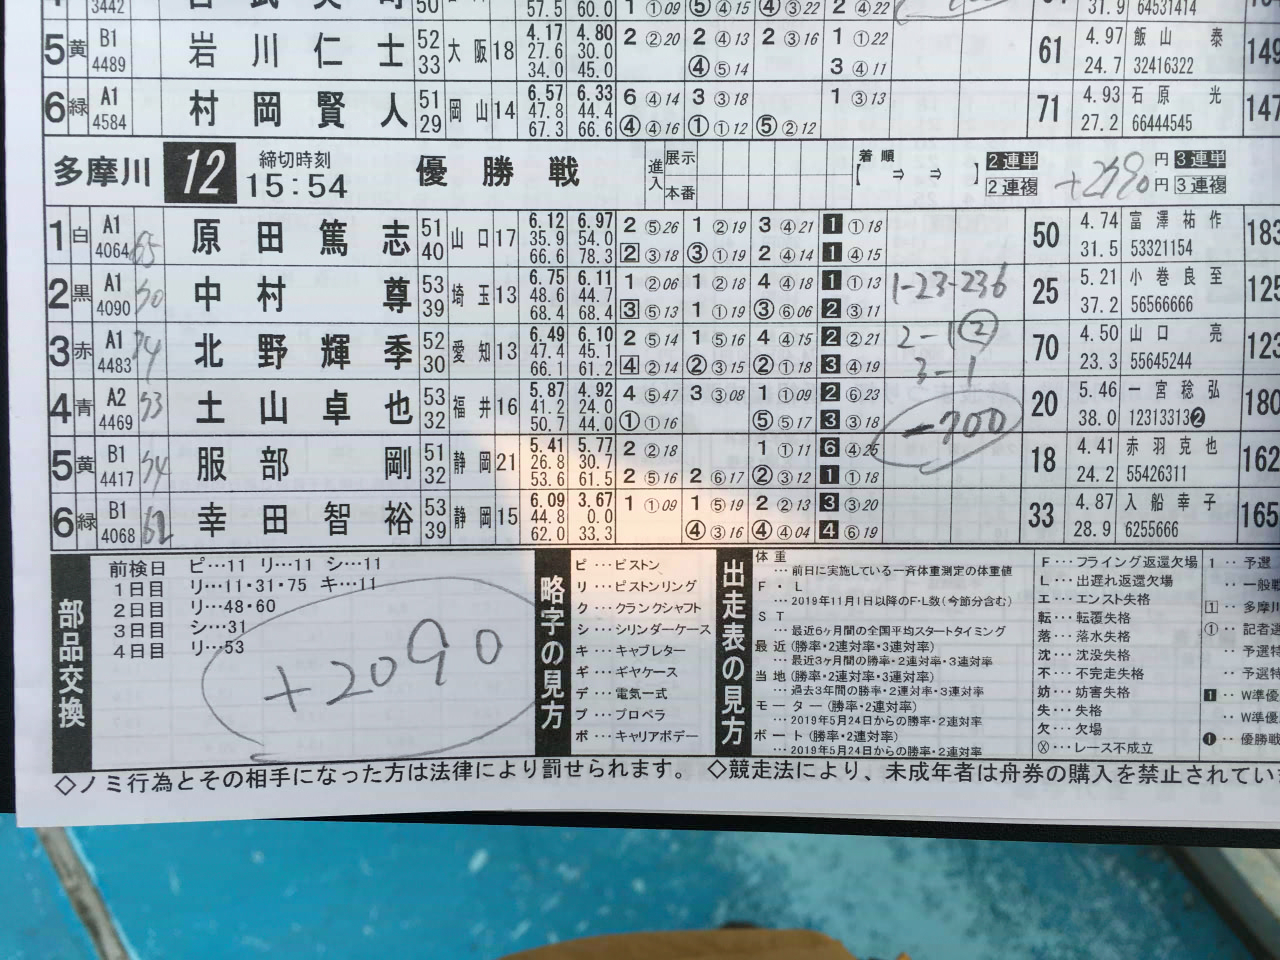 3442 50 57.5 60.0 1 ①09 ⑤④15 ④③22 2 ④22 31.9 64531414
5 黄 B1 4489 岩川仁士 52 33 大阪 18 4.17 27.6 34.0 4.80 30.0 45.0 2 ②20 2 ④13 2 ③16 1 ①22 ④⑤14 3 ④11 61 4.97 24.7 飯山 泰 32416322 149
6 緑 A1 4584 村岡賢人 51 29 岡山 14 6.57 47.8 67.3 6.33 44.4 66.6 6 ④14 3 ③18 1 ③13 ④④16 ①①12 ⑤②12 71 4.93 27.2 石原 光 66444545 147
多摩川 12 締切時刻 15:54 優勝戦 進入 展示 本番 着順 [ ⇒ ⇒ ] 2連単 2連複 +2790 円 円 3連単 3連複
1 白 A1 4064 65 原田篤志 51 40 山口 17 6.12 35.9 66.6 6.97 54.0 78.3 2 ⑤26 1 ②19 3 ④21 1 ①18 2 ③18 ③①19 2 ④14 1 ④15 50 4.74 31.5 富澤祐作 53321154 183
2 黒 A1 4090 50 中村 尊 53 39 埼玉 13 6.75 48.6 68.4 6.11 44.7 68.4 1 ②06 1 ②18 4 ④18 1 ①13 3 ⑤13 1 ①19 ③⑥06 2 ③11 1-23-236 25 5.21 37.2 小巻良至 56566666 125
3 赤 A1 4483 74 北野輝季 52 30 愛知 13 6.49 47.4 66.1 6.10 45.1 61.2 2 ⑤14 1 ⑤16 4 ④15 2 ②21 4 ②14 ②③15 ②①18 3 ④19 2-1② 3-1 70 4.50 23.3 山口 亮 55645244 123
4 青 A2 4469 53 土山卓也 53 32 福井 16 5.87 41.2 50.7 4.92 24.0 44.0 4 ⑤47 3 ③08 1 ①09 2 ⑥23 ①①16 ⑤⑤17 3 ③18 -700 20 5.46 38.0 一宮稔弘 12313313❷ 180
5 黄 B1 4417 54 服部 剛 51 32 静岡 21 5.41 26.8 53.6 5.77 30.7 61.5 2 ②18 1 ①11 6 ④25 2 ⑤16 2 ⑥17 ②③12 1 ①18 18 4.41 24.2 赤羽克也 55426311 162
6 緑 B1 4068 62 幸田智裕 53 39 静岡 15 6.09 44.8 62.0 3.67 0.0 33.3 1 ①09 1 ⑤19 2 ②13 3 ③20 ④③16 ④④04 4 ⑥19 33 4.87 28.9 入船幸子 6255666 165
部品交換
前検日 ピ…11 リ…11 シ…11
1日目 リ…11・31・75 キ…11
2日目 リ…48・60
3日目 シ…31
4日目 リ…53
+2090
略字の見方
ピ…ピストン
リ…ピストンリング
ク…クランクシャフト
シ…シリンダーケース
キ…キャブレター
ギ…ギヤケース
デ…電気一式
プ…プロペラ
ボ…キャリアボデー
出走表の見方
体重
…前日に実施している一斉体重測定の体重値
F・L
…2019年11月1日以降のF・L数(今節分含む)
ST
…最近6ヶ月間の全国平均スタートタイミング
最近(勝率・2連対率・3連対率)
…最近3ヶ月間の勝率・2連対率・3連対率
当地(勝率・2連対率・3連対率)
…過去3年間の勝率・2連対率・3連対率
モーター(勝率・2連対率)
…2019年5月24日からの勝率・2連対率
ボート(勝率・2連対率)
…2019年5月24日からの勝率・2連対率
F…フライング返還欠場
L…出遅れ返還欠場
エ…エンスト失格
転…転覆失格
落…落水失格
沈…沈没失格
不…不完走失格
妨…妨害失格
失…失格
欠…欠場
Ⓧ…レース不成立
1‥予選
‥一般戦
1‥多摩川
①‥記者選
‥予選特
‥予選特
1‥W準優
‥W準優
❶‥優勝戦
◇ノミ行為とその相手になった方は法律により罰せられます。 ◇競走法により、未成年者は舟券の購入を禁止されてい